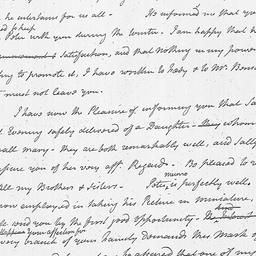 he entertains for us all - He informed me that you
Peter with you during the Winter. I am happy that he
Satisfaction, and that nothing in my power
to promote it, I have written to Naby & to Mr.
must not leave you.
I have now the Pleasure of informing you that Sa
Evening safely delivered of a Daughter - they whom
call Mary - they are both remarkably well, and Sally
of her very aff. Regards - Be pleased to r
all my Brothers & Sisters. Peter, is perfectly well,
now employed in taking his Picture in miniature,
send you by the first good opportunity -
your affection for
every branch of your family Demands this Mark of
be assured that one of my